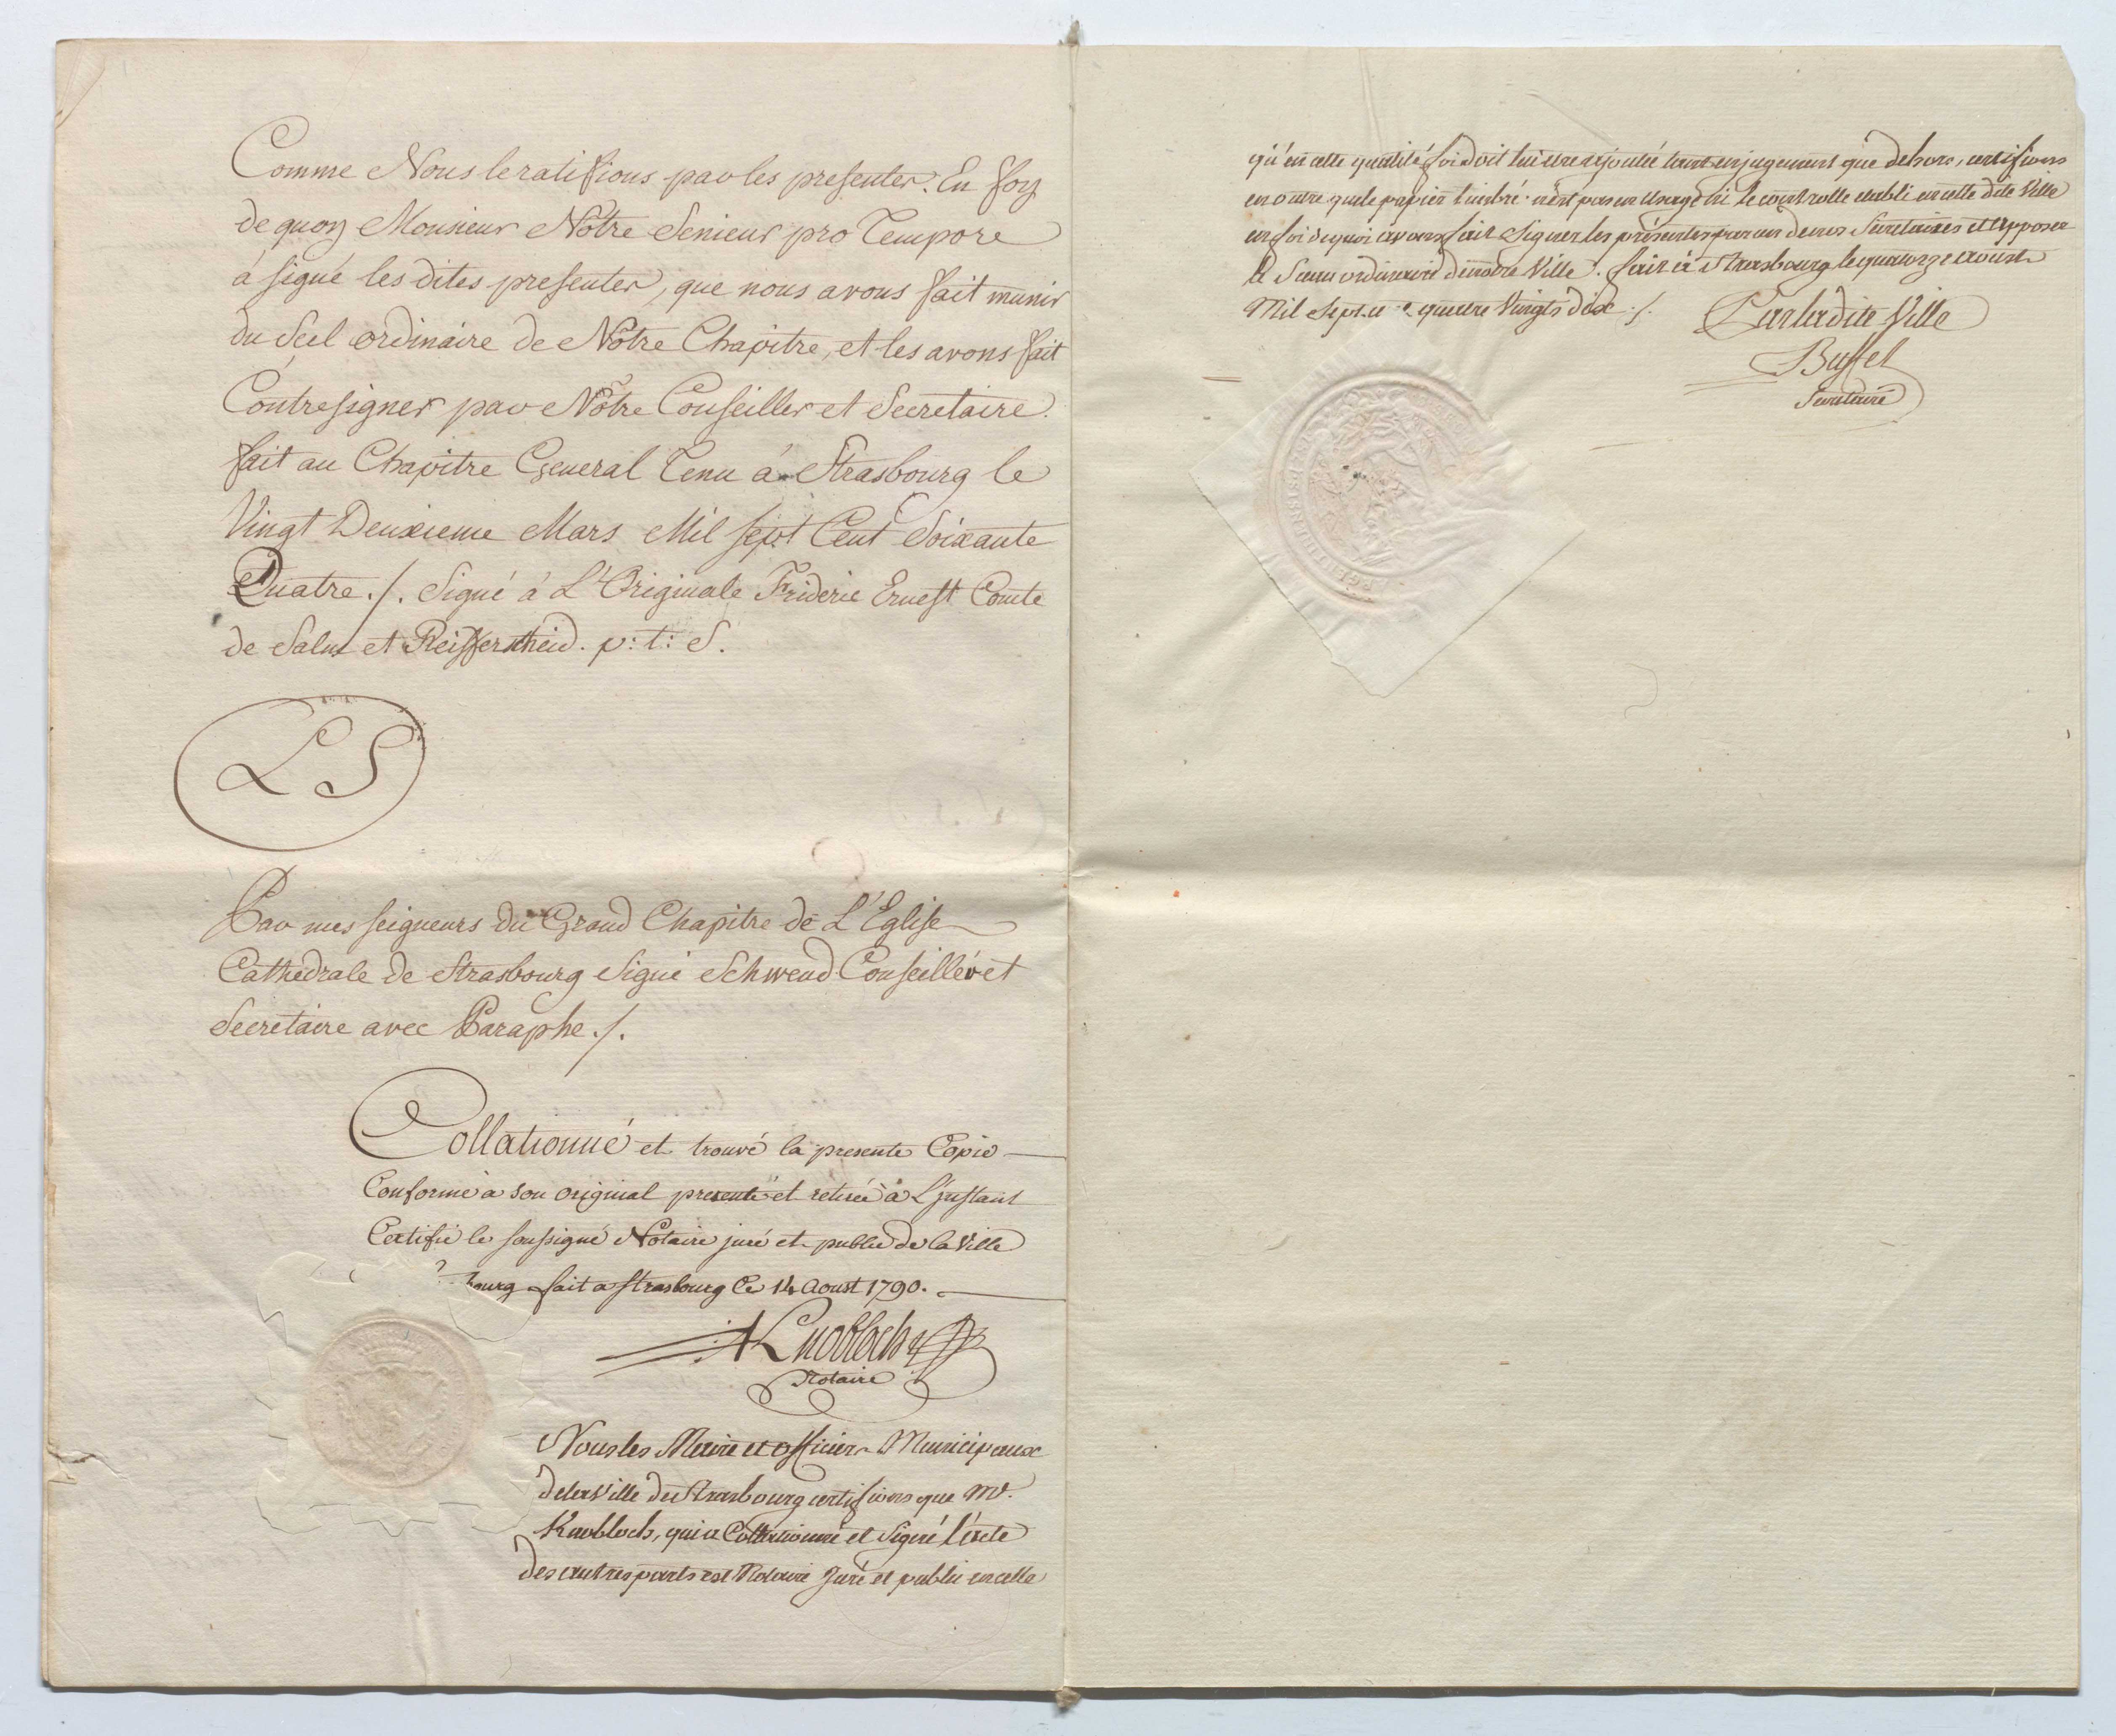 Comme Nous le ratifions par les presentes. En foy
de quoy Monsieur Nôtre Senieur pro Tempore
à signé les dites presentes, que nous avons fait munir
du Scel ordinaire de Nôtre Chapitre, et les avons fait
Contresigner par Nôtre Conseiller et Secretaire.
fait au Chapitre General Tenu á Strasbourg le
Vingt Deuxieme Mars Mil sept Cent Soixante
Quatre ./. Signé á L'Originale Frideric Ernest Comte
de Salm et Reifferscheid. p: t: S.
LS
Par mes seigneurs du Grand Chapitre de L'Eglise
Cathedrale de Strasbourg Signé Schwend Conseiller et
Secretaire avec Paraphe ./.
Collationné et trouvé la presente Copie
Conforme a son original presenté et retiré à L'jnstant
Certifie le soussigné Notaire juré et public de la Ville
bourg fait a Strasbourg Ce 14 Aoust 1790.
Knobloch
Notaire
Nous les Maire et officiers Municipaux
de la Ville de Strasbourg certifions que Mr.
Knobloch, qui a Collationné et Signé l'acte
des autres parts est Notaire Juré et public en celle
qu'en cette qualité foi doit lui etre ajoutée tant en jugement que dehors, certifions
en outre que le papier timbré n'est pas en Usage ni le controlle etabli en cette dite Ville
en foi de quoi avons fait Signer les présentes par un de nos Secretaires et apposer
le Sceau ordinaire de notre Ville. fait à Strasbourg le quatorze aoust
Mil Sept ce quatre Vingts dix ./.
Par la dite Ville
Secretaire